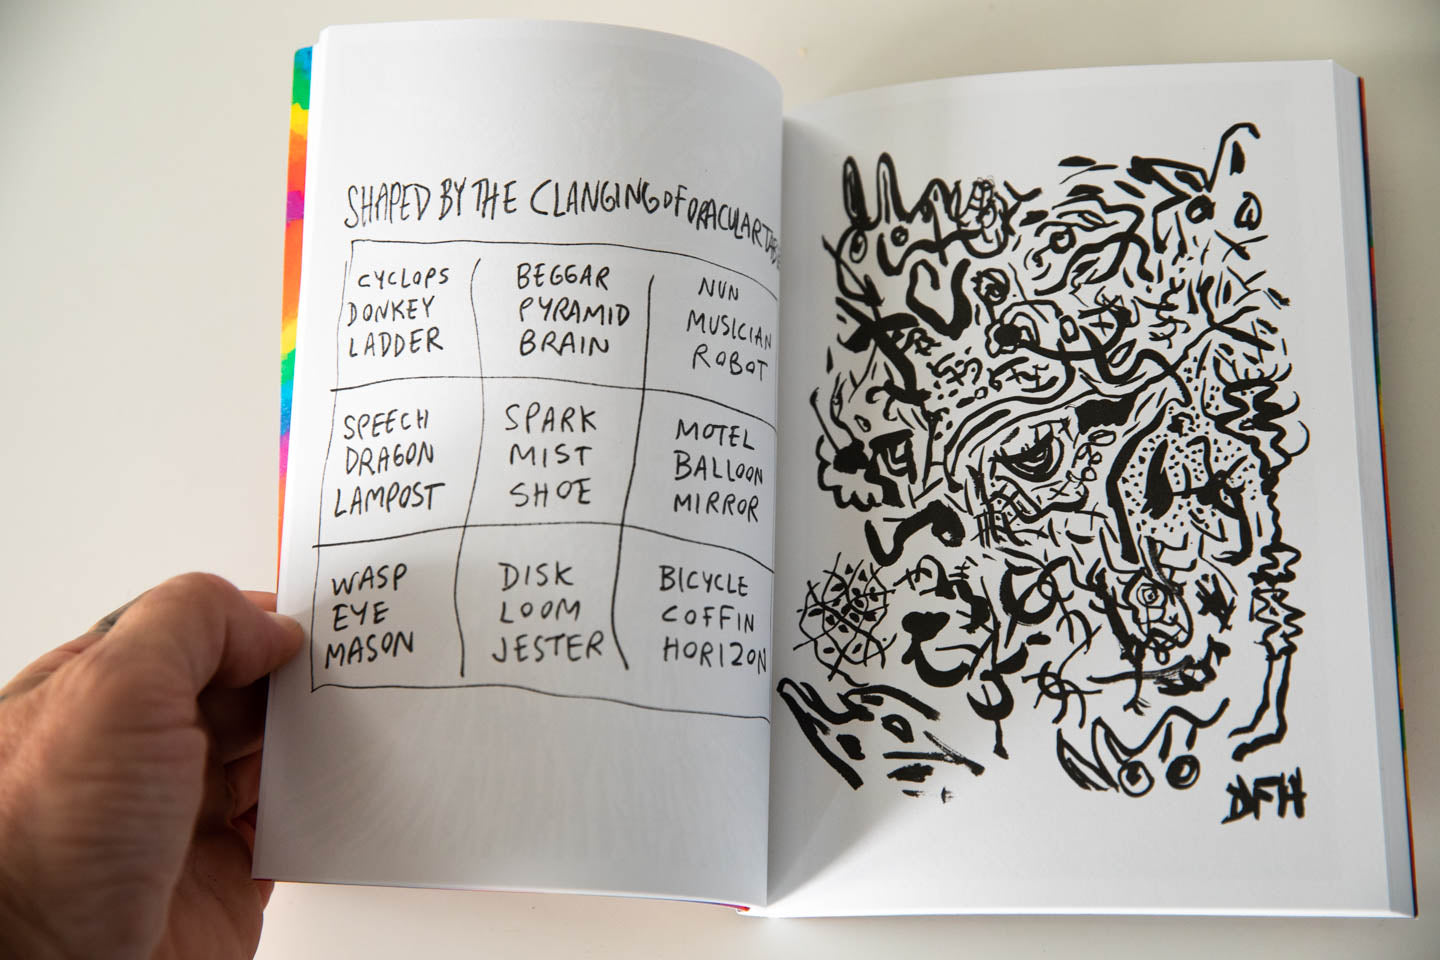 SHAPED BY THE CLANGING OF ORACULAR
CYCLOPS
DONKEY
LADDER
BEGGAR
PYRAMID
BRAIN
NUN
MUSICIAN
ROBOT
SPEECH
DRAGON
LAMPOST
SPARK
MIST
SHOE
MOTEL
BALLOON
MIRROR
WASP
EYE
MASON
DISK
LOOM
JESTER
BICYCLE
COFFIN
HORIZON
DFH